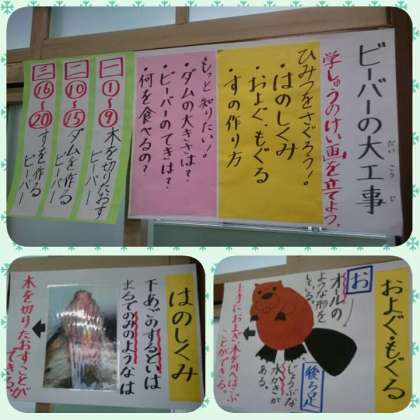 ビーバーの大工事
だいこうじ
学しゅうのけい画を立てよう。
ひみつをさぐろう！
・はのしくみ
・およぐ、もぐる
・すの作り方
もっと知りたい！
・ダムの大きさは？
・ビーバーのてきは？
・何を食べるの？
一
①〜⑨
木を切りたおす
ビーバー
二
⑩〜⑮
ダムを作る
ビーバー
三
⑯〜⑳
すを作る
ビーバー
はのしくみ
下あごのするどいは
まるでのみのようなは
木を切りたおすことが
できる。
およぐ・もぐる
お
オールの
ような形を
している。
後ろ足
じょうぶな
水かきが
ある。